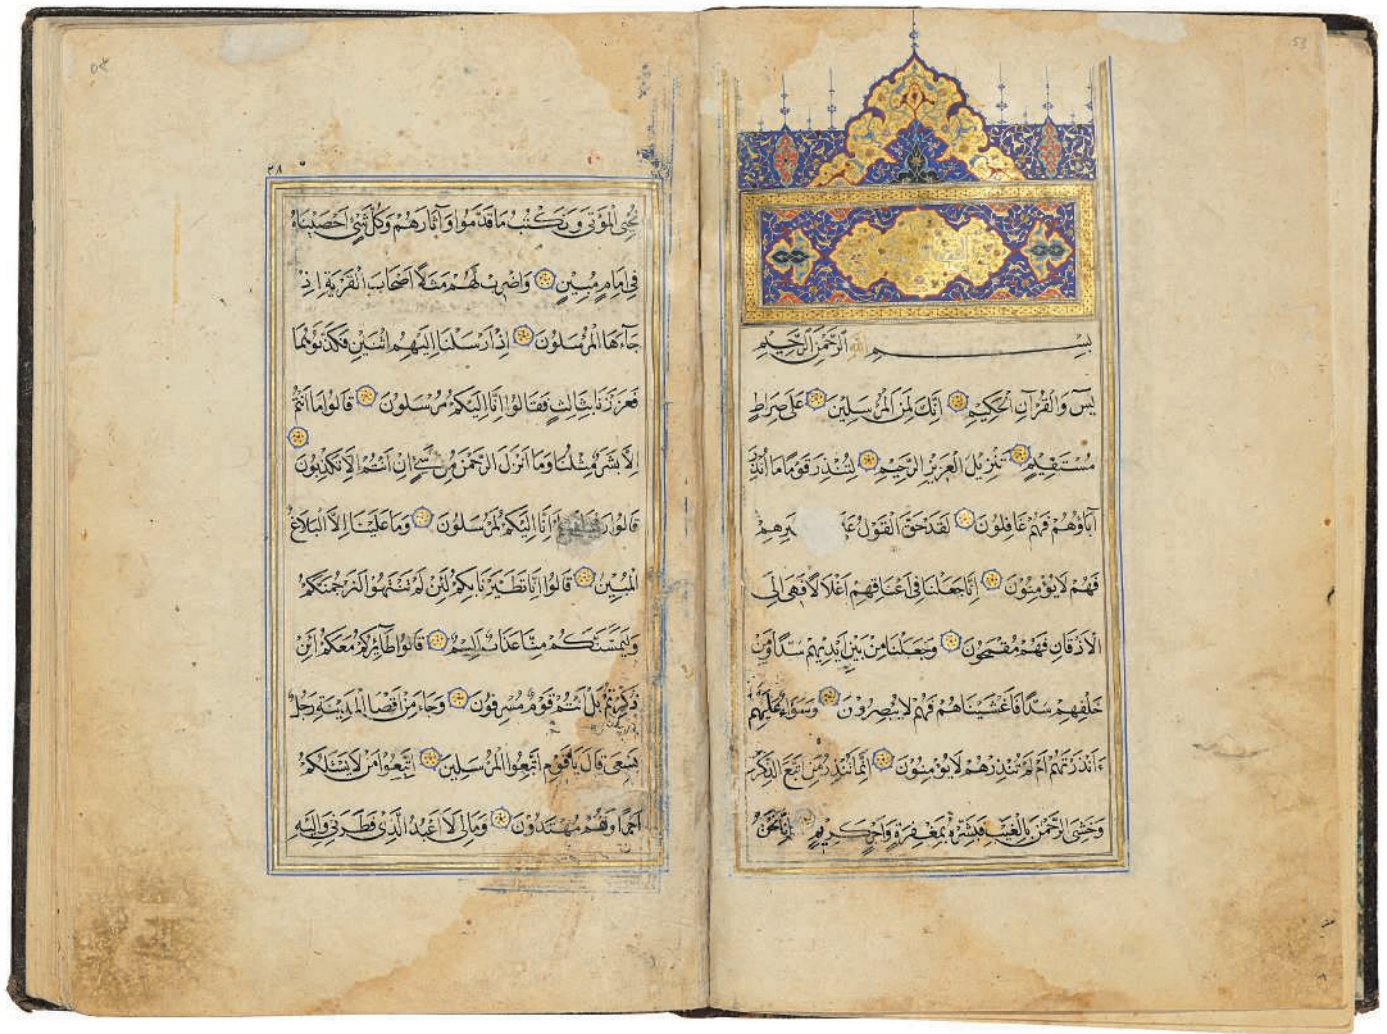 بسم الله الرحمن الرحيم
يس وَالْقُرْآنِ الْحَكِيمِ إِنَّكَ لَمِنَ الْمُرْسَلِينَ عَلَى صِرَاطٍ
مُسْتَقِيمٍ تَنْزِيلَ الْعَزِيزِ الرَّحِيمِ لِتُنْذِرَ قَوْمًا مَا أُنْذِرَ
آبَاؤُهُمْ فَهُمْ غَافِلُونَ لَقَدْ حَقَّ الْقَوْلُ
فَهُمْ لَا يُؤْمِنُونَ إِنَّا جَعَلْنَا فِي أَعْنَاقِهِمْ أَغْلَالًا فَهِيَ إِلَى
الْأَذْقَانِ فَهُمْ مُقْمَحُونَ وَجَعَلْنَا مِنْ بَيْنِ أَيْدِيهِمْ سَدًّا وَمِنْ
خَلْفِهِمْ سَدًّا فَأَغْشَيْنَاهُمْ فَهُمْ لَا يُبْصِرُونَ وَسَوَاءٌ عَلَيْهِمْ
ءَأَنْذَرْتَهُمْ أَمْ لَمْ تُنْذِرْهُمْ لَا يُؤْمِنُونَ إِنَّمَا تُنْذِرُ مَنِ اتَّبَعَ الذِّكْرَ
وَخَشِيَ الرَّحْمٰنَ بِالْغَيْبِ فَبَشِّرْهُ بِمَغْفِرَةٍ وَأَجْرٍ كَرِيمٍ إِنَّا نَحْنُ
نُحْيِي الْمَوْتَى وَنَكْتُبُ مَا قَدَّمُوا وَآثَارَهُمْ وَكُلَّ شَيْءٍ أَحْصَيْنَاهُ
فِي إِمَامٍ مُبِينٍ وَاضْرِبْ لَهُمْ مَثَلًا أَصْحَابَ الْقَرْيَةِ إِذْ
جَاءَهَا الْمُرْسَلُونَ إِذْ أَرْسَلْنَا إِلَيْهِمُ اثْنَيْنِ فَكَذَّبُوهُمَا
فَعَزَّزْنَا بِثَالِثٍ فَقَالُوا إِنَّا إِلَيْكُمْ مُرْسَلُونَ قَالُوا مَا أَنْتُمْ
إِلَّا بَشَرٌ مِثْلُنَا وَمَا أَنْزَلَ الرَّحْمٰنُ مِنْ شَيْءٍ إِنْ أَنْتُمْ إِلَّا تَكْذِبُونَ
قَالُوا إِنَّا إِلَيْكُمْ لَمُرْسَلُونَ وَمَا عَلَيْنَا إِلَّا الْبَلَاغُ
الْمُبِينُ قَالُوا إِنَّا تَطَيَّرْنَا بِكُمْ لَئِنْ لَمْ تَنْتَهُوا لَنَرْجُمَنَّكُمْ
وَلَيَمَسَّنَّكُمْ مِنَّا عَذَابٌ أَلِيمٌ قَالُوا طَائِرُكُمْ مَعَكُمْ أَئِنْ
ذُكِّرْتُمْ بَلْ أَنْتُمْ قَوْمٌ مُسْرِفُونَ وَجَاءَ مِنْ أَقْصَا الْمَدِينَةِ رَجُلٌ
يَسْعَى قَالَ يَا قَوْمِ اتَّبِعُوا الْمُرْسَلِينَ اتَّبِعُوا مَنْ لَا يَسْأَلُكُمْ
أَجْرًا وَهُمْ مُهْتَدُونَ وَمَا لِيَ لَا أَعْبُدُ الَّذِي فَطَرَنِي وَإِلَيْهِ